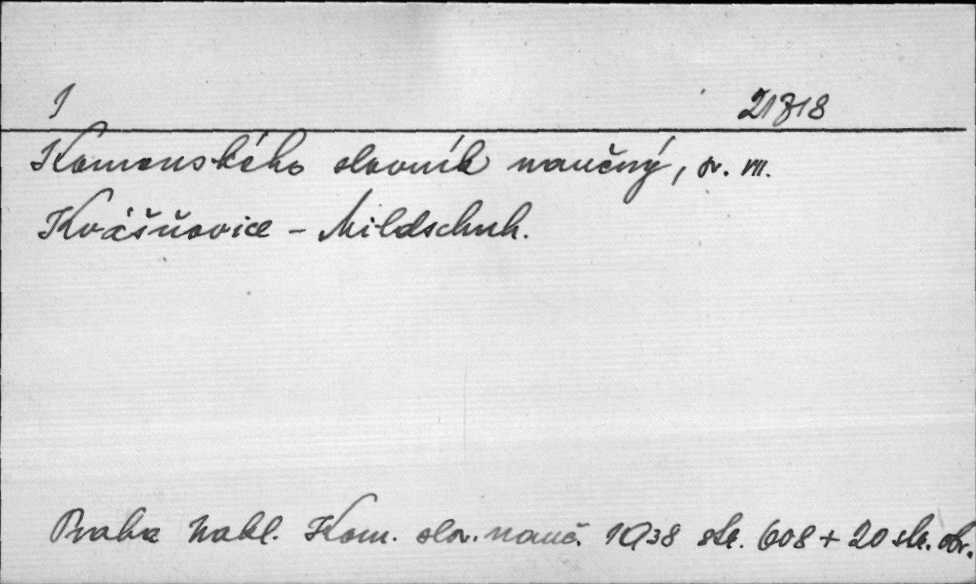 I 21818
Komenského slovník naučný, sv. VII.
Kvášňovice - Mildschuh.
Praha Nakl. Kom. slov. nauč. 1938 str. 608 + 20 str. obr.